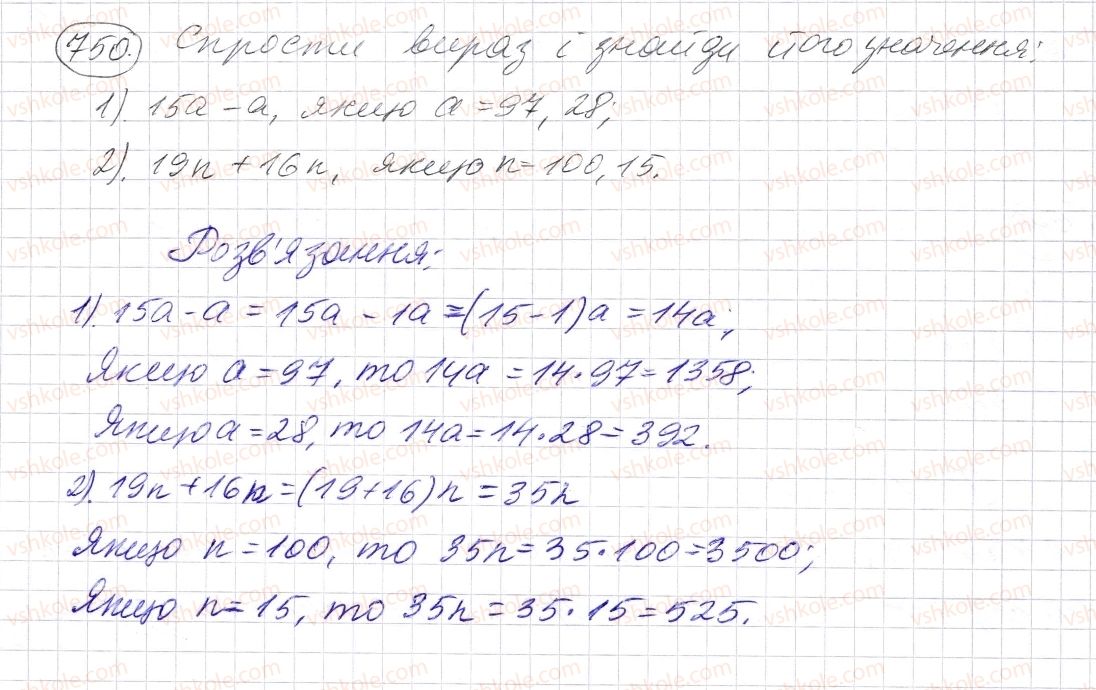 750. Спрости вираз і знайди його значення:
1). 15a - a, якщо a = 97, 28;
2). 19n + 16n, якщо n = 100, 15.
Розв'язання:
1). 15a - a = 15a - 1a = (15 - 1)a = 14a;
Якщо a = 97, то 14a = 14·97 = 1358;
Якщо a = 28, то 14a = 14·28 = 392.
2). 19n + 16n = (19 + 16)n = 35n
Якщо n = 100, то 35n = 35·100 = 3500;
Якщо n = 15, то 35n = 35·15 = 525.